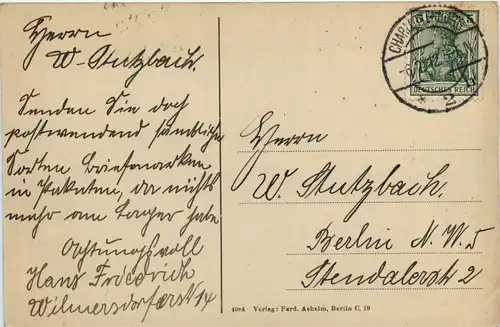 Herrn
W. Stutzbach.
Senden Sie doch
postwendend sämtliche
Sorten Briefmarken
in Paketen, da nichts
mehr am Lager habe.
Achtungsvoll
Hans Friedrich
Wilmersdorferstr. 14
5 5
DEUTSCHES REICH
2
Herrn
W. Stutzbach.
Berlin N. W. 5
Stendalerstr 2
4084 Verlag: Ferd. Ashelm, Berlin C. 19